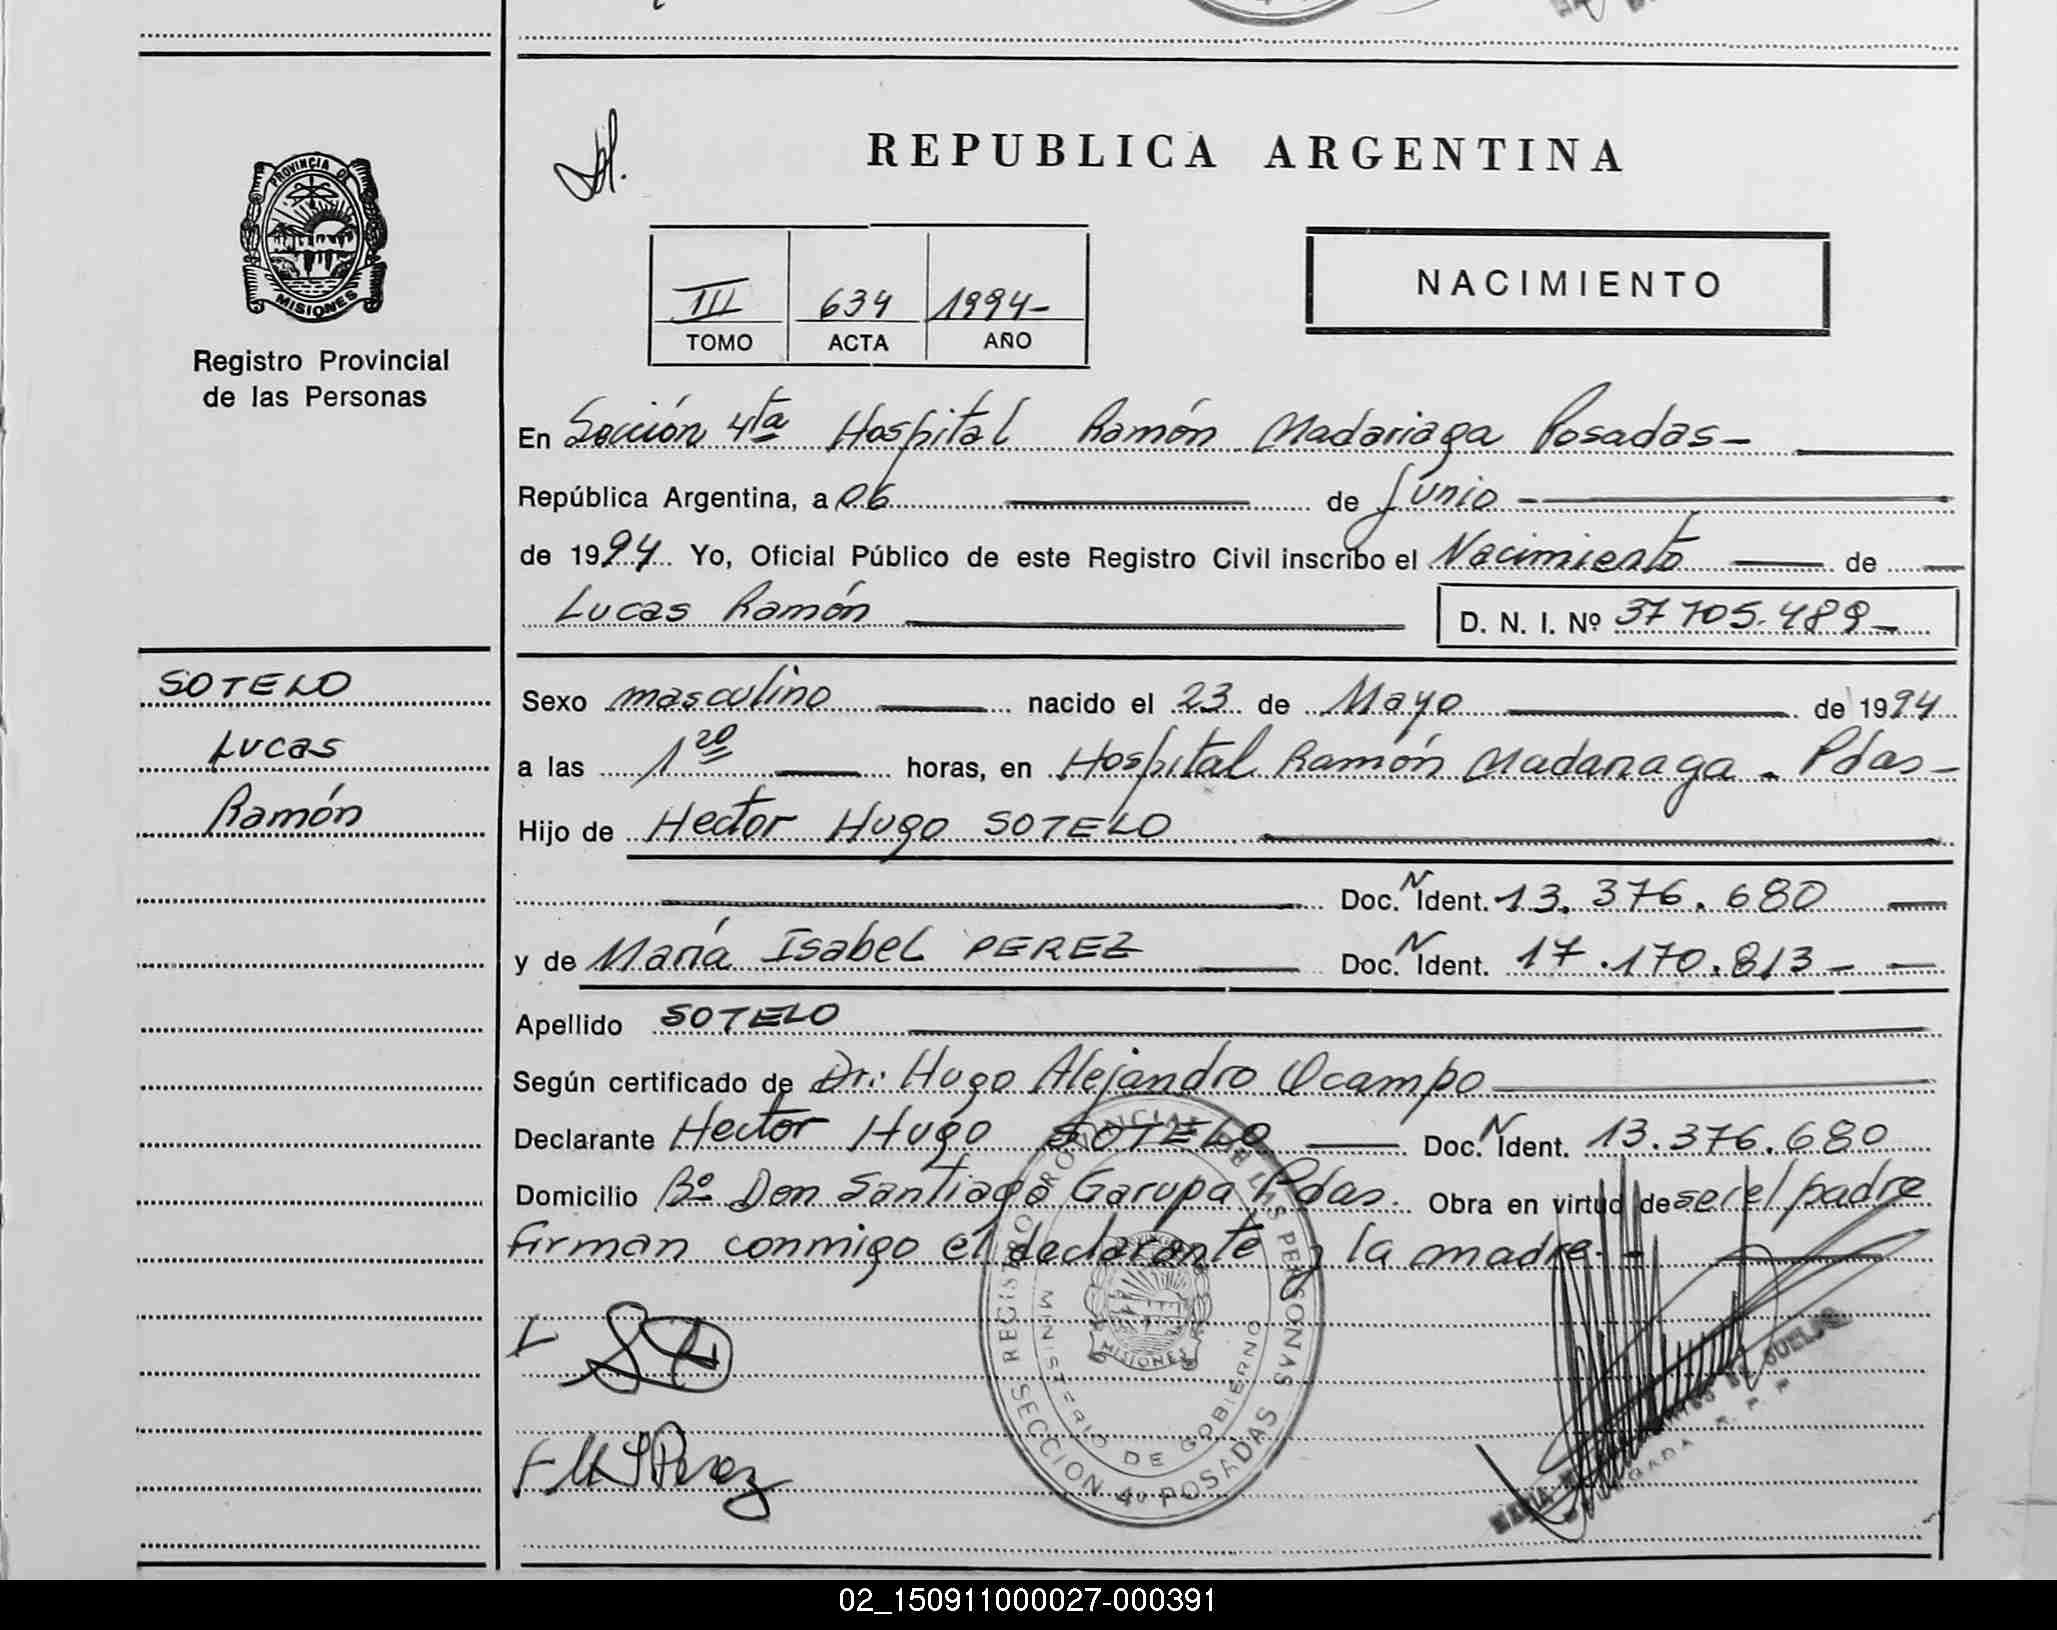 REPUBLICA ARGENTINA
PROVINCIA DE
MISIONES
Registro Provincial
de las Personas
III 634 1994-
TOMO ACTA AÑO
NACIMIENTO
En Sección 4ta Hospital Ramón Madariaga Posadas-
República Argentina, a 06 de Junio -
de 1994 Yo, Oficial Público de este Registro Civil inscribo el Nacimiento de
Lucas Ramón D. N. I. Nº 37 705.489-
SOTELO
Lucas
Ramón
Sexo masculino nacido el 23 de Mayo de 1994
a las 1 20 horas, en Hospital Ramón Madariaga - Pdas-
Hijo de Hector Hugo SOTELO
Doc. N Ident. 13.376.680
y de María Isabel PEREZ Doc. N Ident. 17.170.813-
Apellido SOTELO
Según certificado de Dr: Hugo Alejandro Ocampo
Declarante Hector Hugo SOTELO Doc. N Ident. 13.376.680
Domicilio Bº Don Santiago Garupa Pdas. Obra en virtud de ser el padre
firman conmigo el declarante y la madre.-
REGISTRO PROVINCIAL DE LAS PERSONAS
MINISTERIO DE GOBIERNO
MISIONES
SECCION 4º POSADAS
Perez
02_150911000027-000391